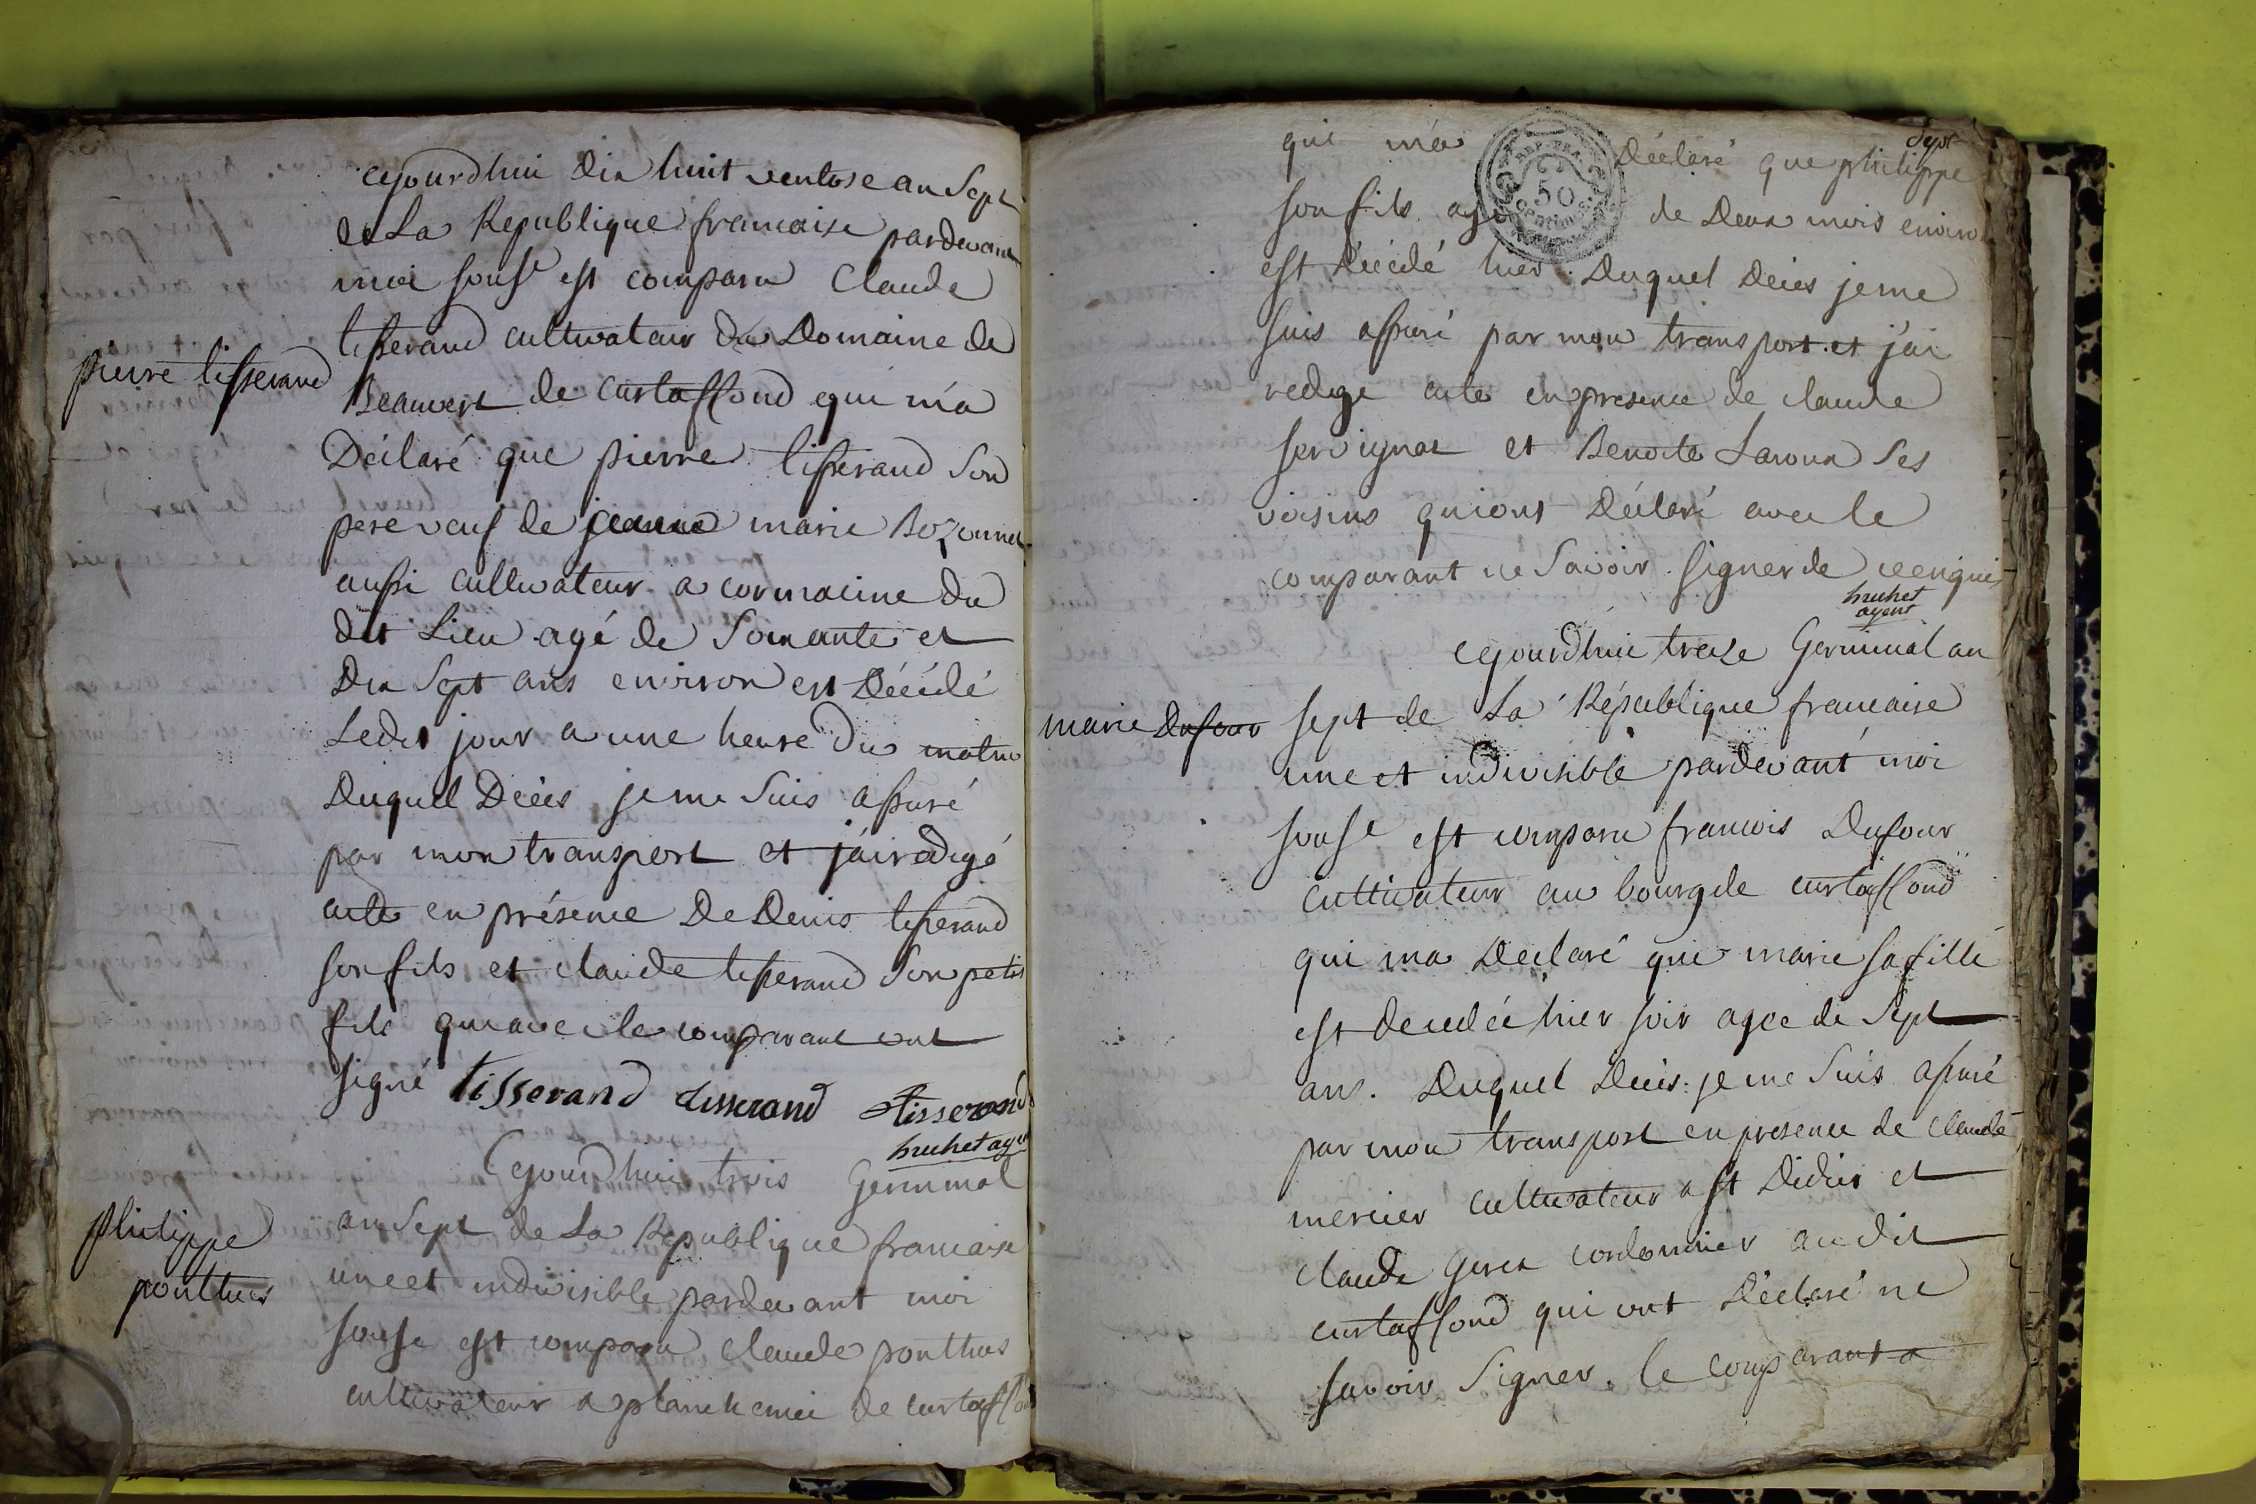 cejourdhui dix huit ventose an Sept
de La Republique francaise pardevant
moi souse est comparu Claude
tisserand cultivateur du Domaine de
pierre tisserand
Beauvert de curtaffond qui m'a
Déclaré que pierre tisserand Son
pere veuf de jeanne marie Bozonnet
aussi cultivateur a cormacine du
dit Lieu agé de Soixante et
Dix Sept ans environ est Décédé
Ledit jour a une heure du matin
Duquel Décès je me Suis assuré
par mon transport et j'ai redigé
acte en présence De Denis tisserand
son fils et claude tisserand Son petit
fils qui avec le comparant ont
signé tisserand tisserand tisserand
bruhet agent
Cejourdhui trois Germinal
philippe
ponthus
an Sept de La Republique francaise
une et indivisible pardevant moi
souse est comparu claude ponthus
cultivateur a planchemei de curtaffond
Sept
qui m'a Déclaré que philippe
REP. FRA.
50
CENTIMES
son fils agé de Deux mois environ
est Décédé hier. Duquel Décès je me
suis assuré par mon transport et j'ai
redigé acte en presence de claude
servignat et Benoite Laroux Ses
voisins qui ont Déclaré avec le
comparant ne Savoir signer de ce enquis
bruhet
agent
cejourdhui treize Germinal an
marie Dufour
sept de La République francaise
une et indivisible pardevant moi
souse est comparu francois Dufour
cultivateur au bourg de curtaffond
qui ma Déclaré que marie sa fille
est decedée hier soir agée de Sept
ans. Duquel Décès je me Suis assuré
par mon transport en presence de claude
mercier cultivateur a St Didier et
claude cordonnier audit
curtaffond qui ont Déclaré ne
savoir Signer. le comparant a